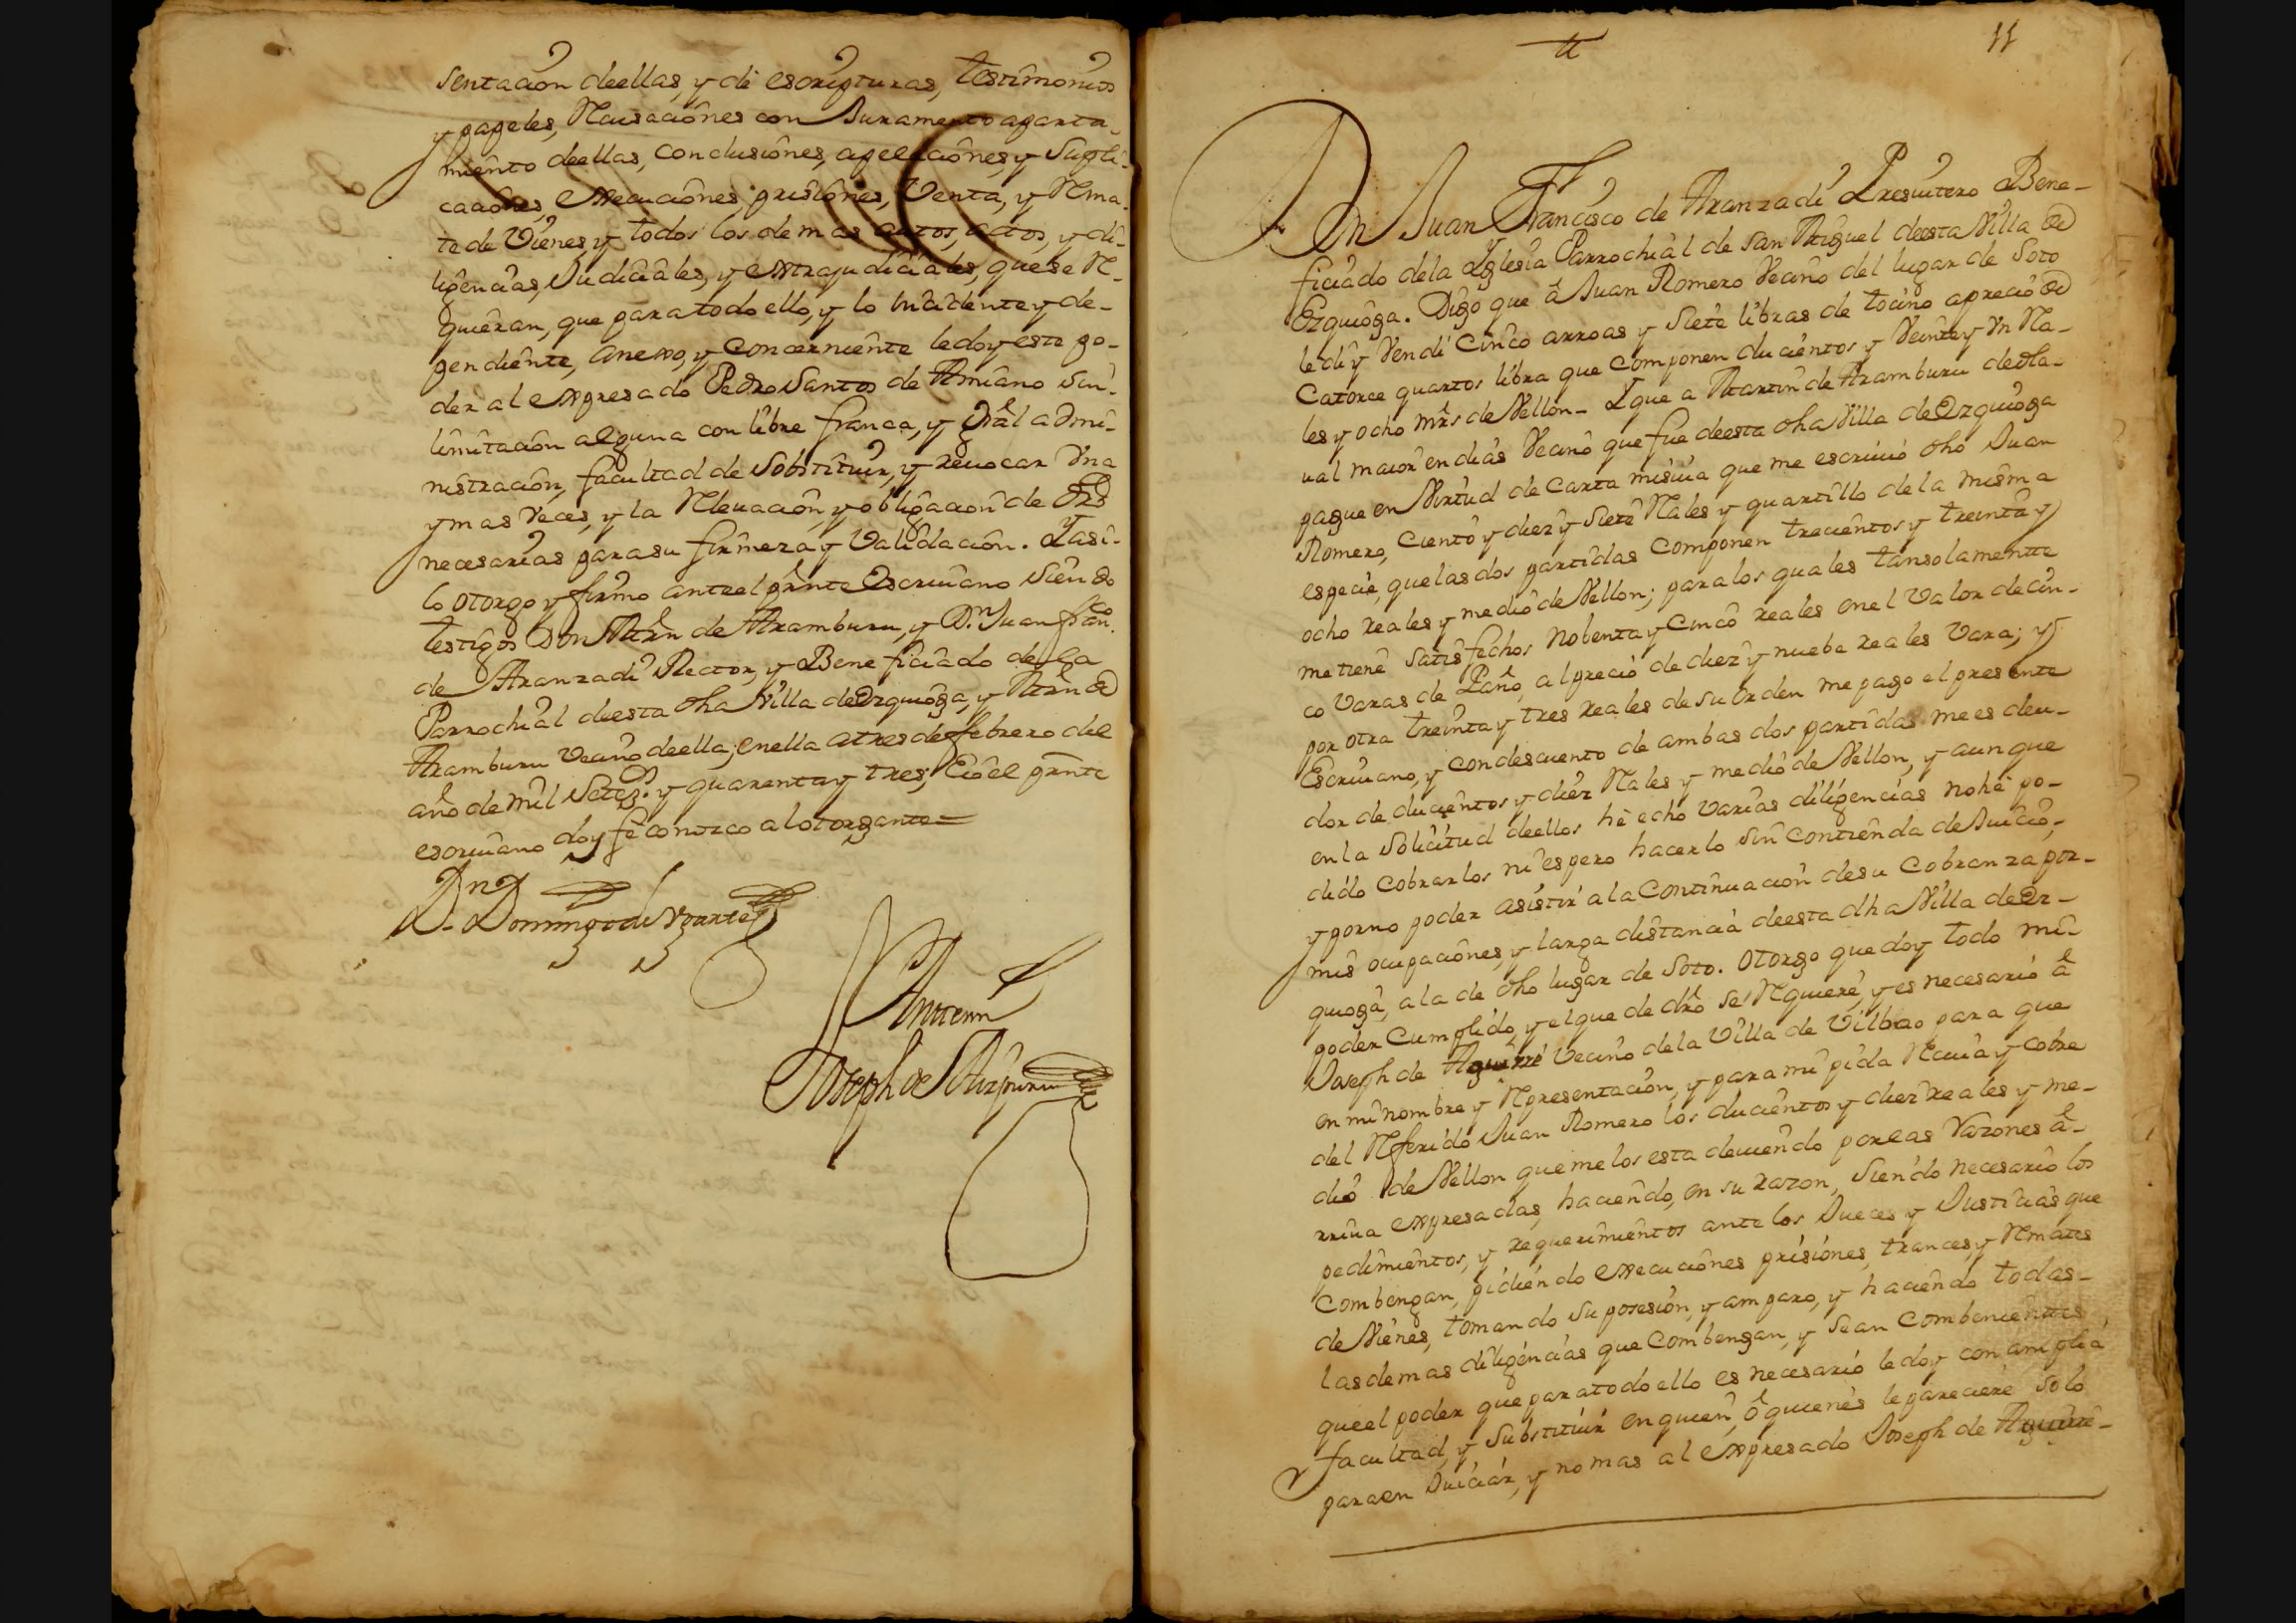 sentacion deellas, y de escripturas, testimonios
y papeles, Recusaciones con Juramento aparta-
miento deellas, conclusiones, apelaciones, y Supli-
caciones, execuciones, prisiones, Venta, y Rema-
te de Vienes y todos los demas autos, actos, y di-
ligencias, Judiciales, y extrajudiciales, que se Re-
quieran, que para todo ello, y lo Incidente y de-
pendiente, anexo, y concerniente le doy este po-
der al expresado Pedro Santos de Amiano sin
limitacion alguna con libre franca, y gral admi-
nistracion, facultad de Sobstituir, y revocar Vna
y mas Veces, y la Relevacion, y obligacion de dro
necesarias para su firmeza y Validacion. Y asi
lo otorgo y firmo ante el prnte Escriuano Siendo
testigos Don Mrn de Aramburu, y Dn. Juan Franco
de Aranzadi Rector, y Beneficiado de la
Parrochial deesta dha Villa de Ezquioga, y Mrn de
Aramburu Vecino deella; en ella a tres de febrero del
año de mil Setezs. y quarenta y tres; E io el prnte
escriuano doy fe conozco al otorgante=
Dn. Domingo de Yzarte
Antemi
Joseph de Aizpuru
tt
11
Dn Juan Francisco de Aranzadi Presuitero Bene-
ficiado dela Yglesia Parrochial de San Miguel deesta Villa de
Ezquioga. Digo que â Juan Romero Vecino del lugar de Soto
le di y Vendi Cinco arroas y Siete libras de tocino a precio de
Catorce quartos libra que componen ducientos y Veinte y Vn Rea-
les y ocho mrs de Vellon- Y que a Martin de Aramburu de ola-
ual maior en dias Vecino que fue deesta dha Villa de Ezquioga
pague en Virtud de Carta misiua que me escriuió dho Juan
Romero, ciento y diez y Siete Reales y quartillo de la misma
especie, que las dos partidas componen trecientos y treinta y
ocho reales y medio de Vellon; para los quales tansolamentte
me tiene satisfechos Nobenta y Cinco reales en el Valor de cin-
co Varas de Paño, al precio de diez y nuebe reales Vara; y
por otra treinta y tres reales de su orden me pago el presente
Escriuano, y con descuento de ambas dos partidas me es deu-
dor de ducientos y diez Reales y medio de Vellon, y aunque
en la Solicitud deellos hè echo Varias diligencias no hè po-
dido Cobrarlos ni espero hacerlo sin contienda de Juicio,
y por no poder asistir a la Continuacion de su Cobranza por
mis ocupaciones, y larga distancia deesta dha Villa de Ez-
quioga, a la de dho lugar de Soto. Otorgo que doy todo mi
poder Cumplido, y el que de dro se Requiere, y es necesario â
Joseph de Aguirre Vecino dela Villa de Vilbao para que
en mi nombre y Representacion, y para mi pida Reciua y cobre
del Referido Juan Romero los ducientos y diez reales y me-
dio de Vellon que me los esta deuiendo por las Razones â-
rriua expresadas, haciendo, en su razon, Siendo necesario los
pedimientos, y requerimientos ante los Jueces y Justicias que
Combengan, pidiendo execuciones prisiones, trances, y Remates
de Vienes, tomando su posesion, y amparo, y haciendo todas
las demas diligencias que Combengan, y sean Combenientes
que el poder que para todo ello es necesario le doy con amplia
facultad, y Substituir en quien, ô quienes le pareciere solo
para en Juiciar, y no mas al expresado Joseph de Aguirre-